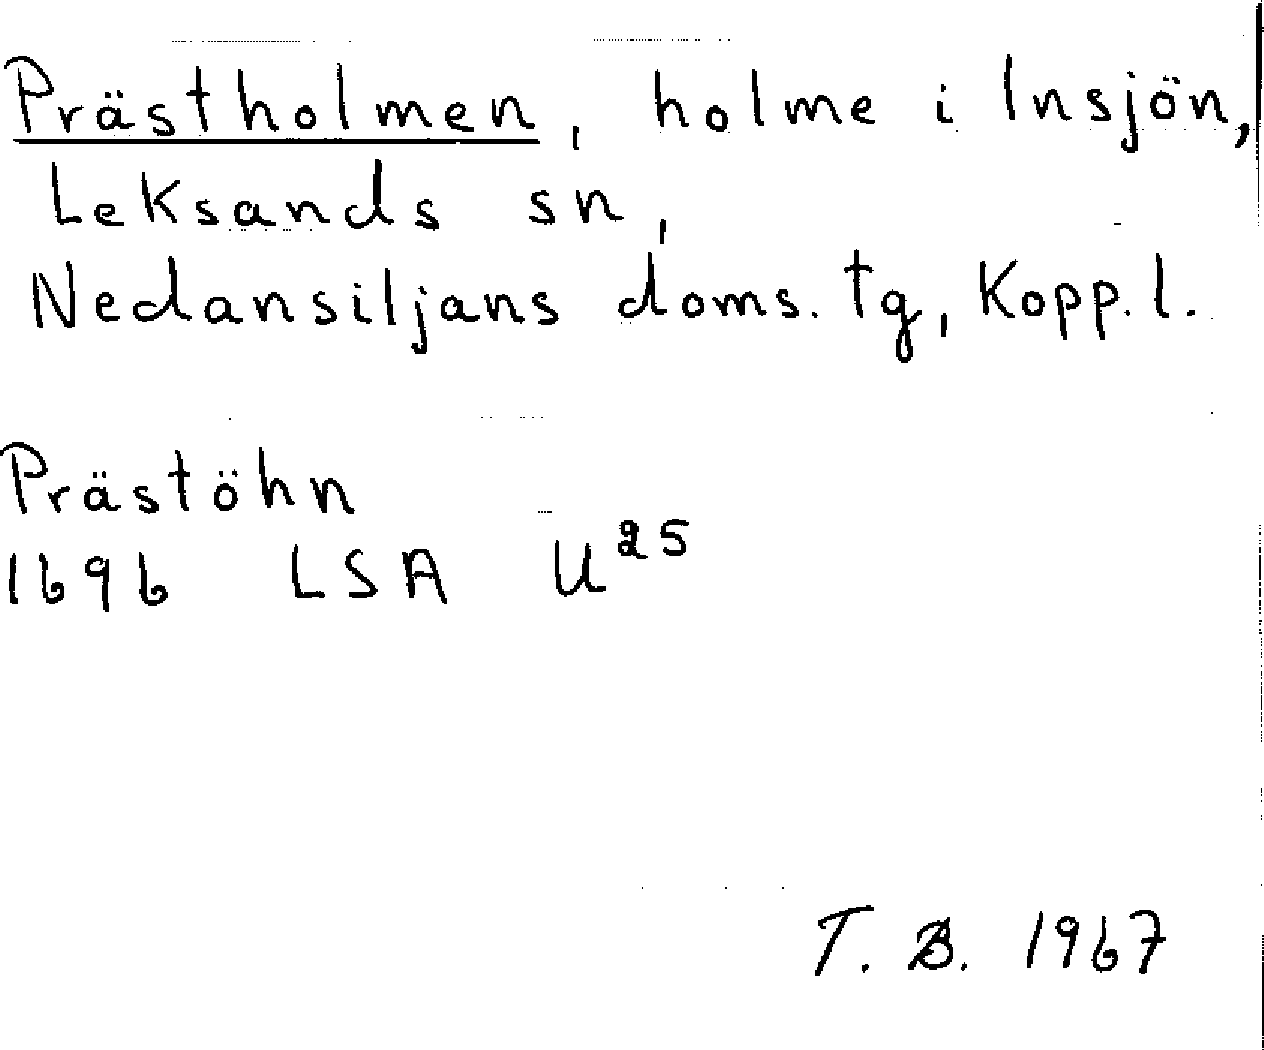 Prästholmen, holme i Insjön,
Leksands sn,
Nedansiljans doms. tg, Kopp. l.
Prästöhn
1696 LSA U²⁵
T. B. 1967